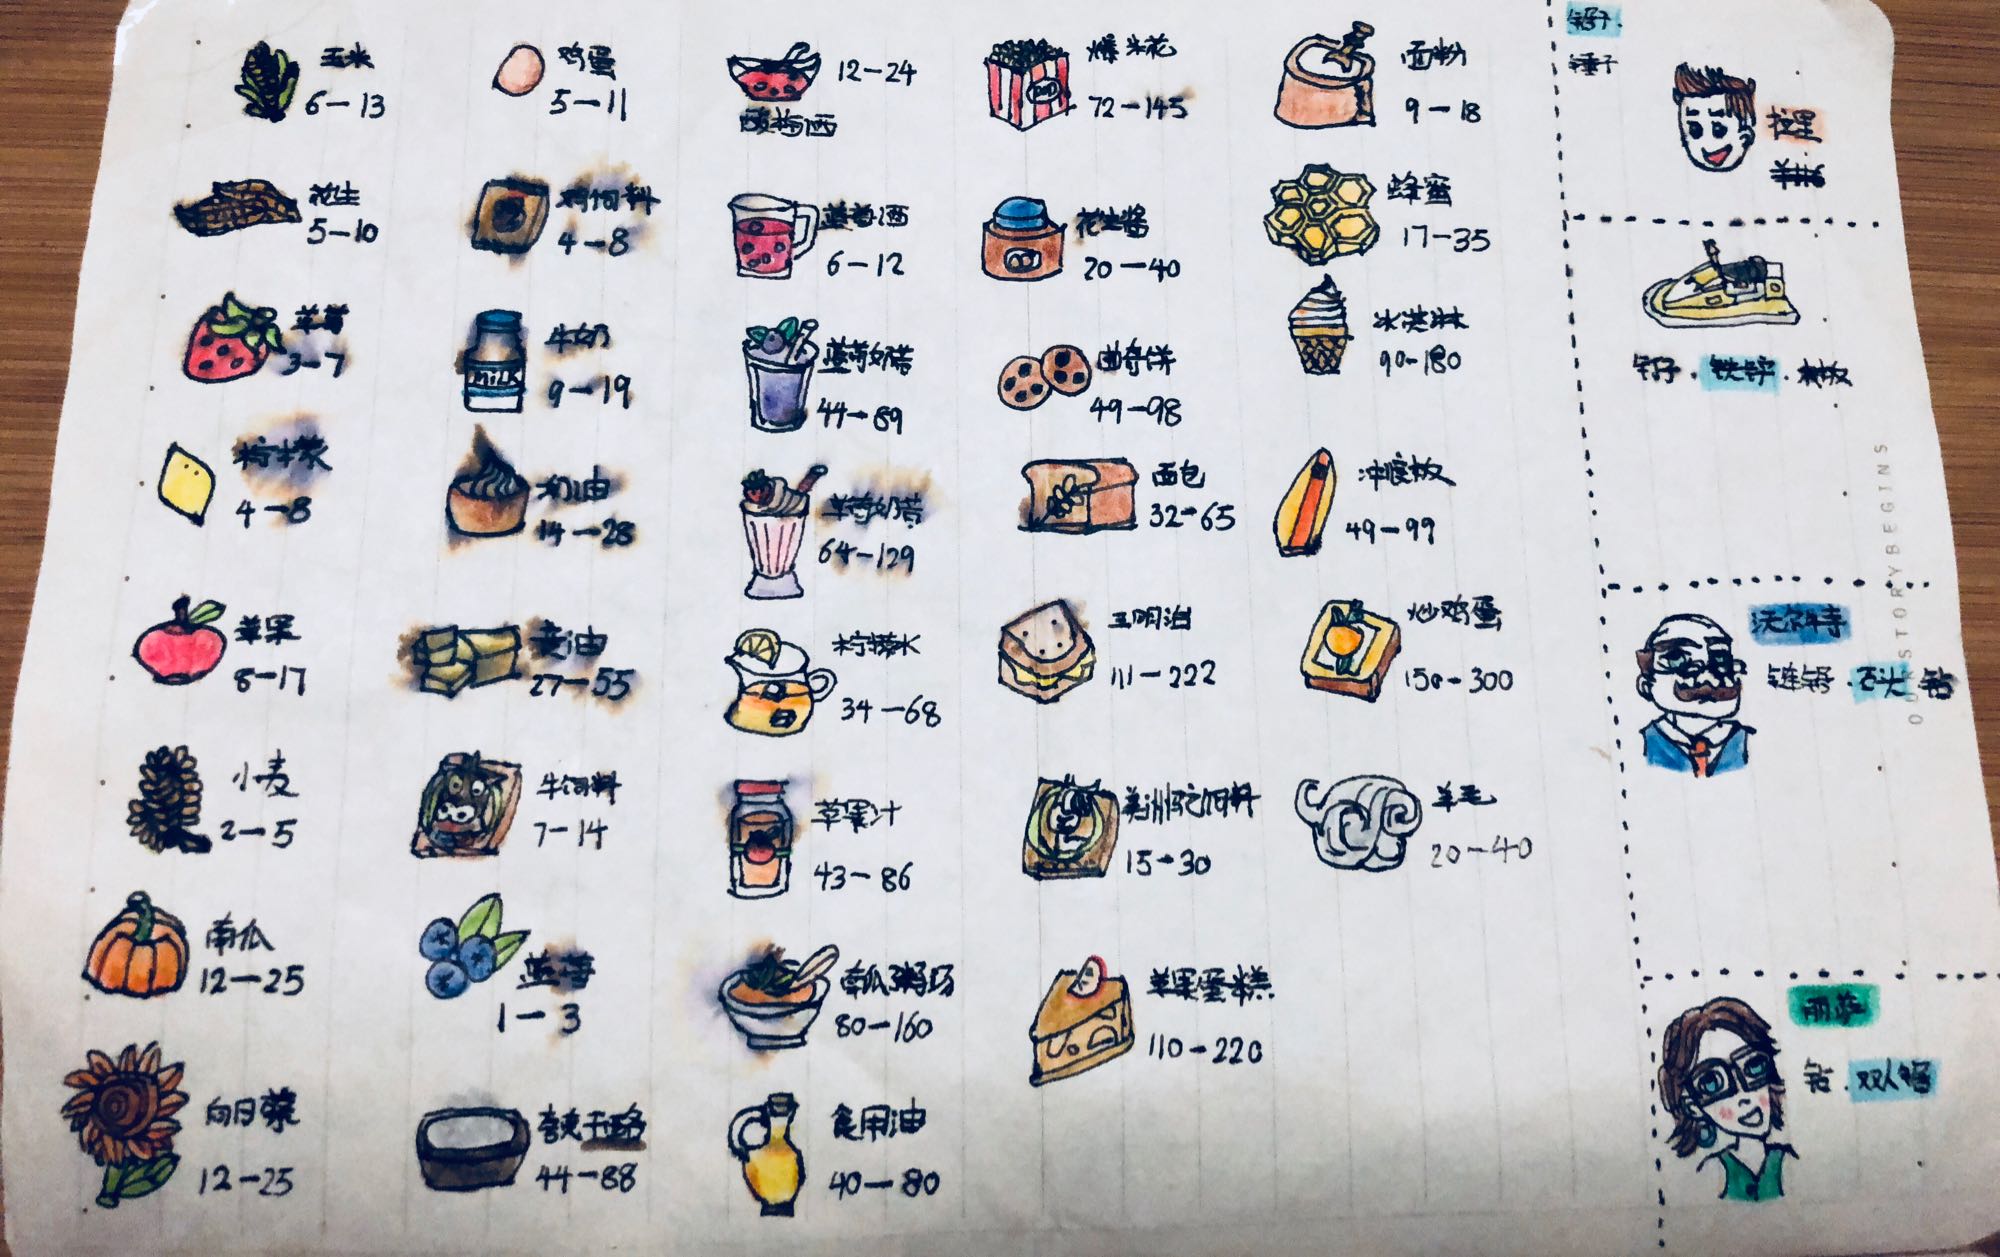 玉米
6-13
鸡蛋
5-11
12-24
酸梅酒
爆米花
72-145
面粉
9-18
花生
5-10
鸡饲料
4-8
蓝莓酒
6-12
花生酱
20-40
蜂蜜
17-35
草莓
3-7
牛奶
9-19
milk
蓝莓奶昔
44-89
曲奇饼
49-98
冰淇淋
90-180
柠檬
4-8
奶油
14-28
草莓奶昔
64-129
面包
32-65
冲浪板
49-99
苹果
8-17
黄油
27-55
柠檬水
34-68
三明治
111-222
炒鸡蛋
150-300
小麦
2-5
牛饲料
7-14
苹果汁
43-86
美洲驼饲料
15-30
羊毛
20-40
南瓜
12-25
蓝莓
1-3
南瓜粥
80-160
苹果蛋糕
110-220
向日葵
12-25
干酪
44-88
食用油
40-80
锯子
锤子
钉子.铁锹.木板
沃尔特
链锯.石头 钻
丽萨
钻.双人锯
OURSTORYBEGINS